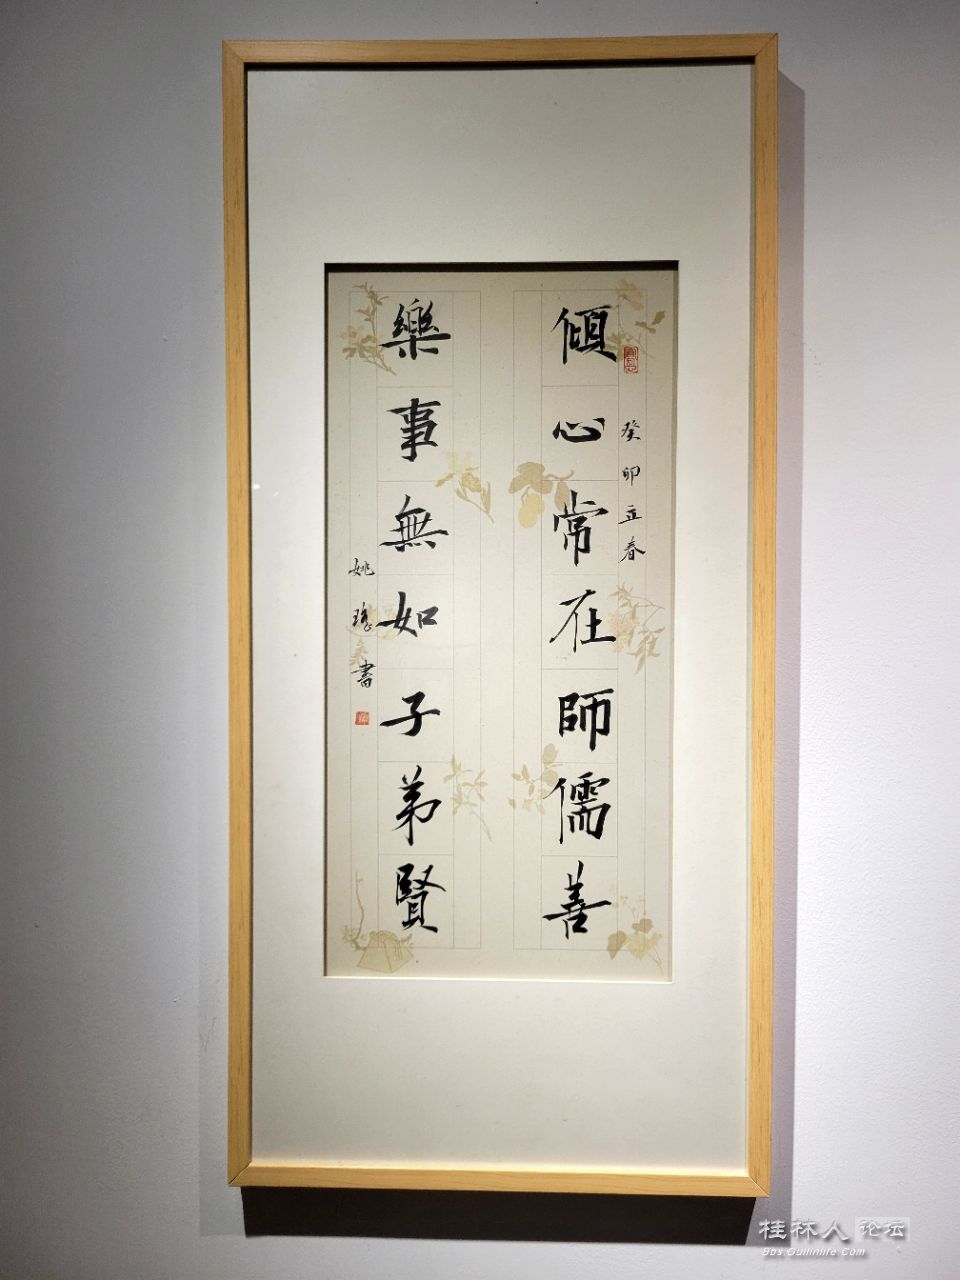 癸卯立春
傾心常在師儒善
樂事無如子弟賢
姚瑤書
桂林人论坛
Bbs.Guilinlife.Com